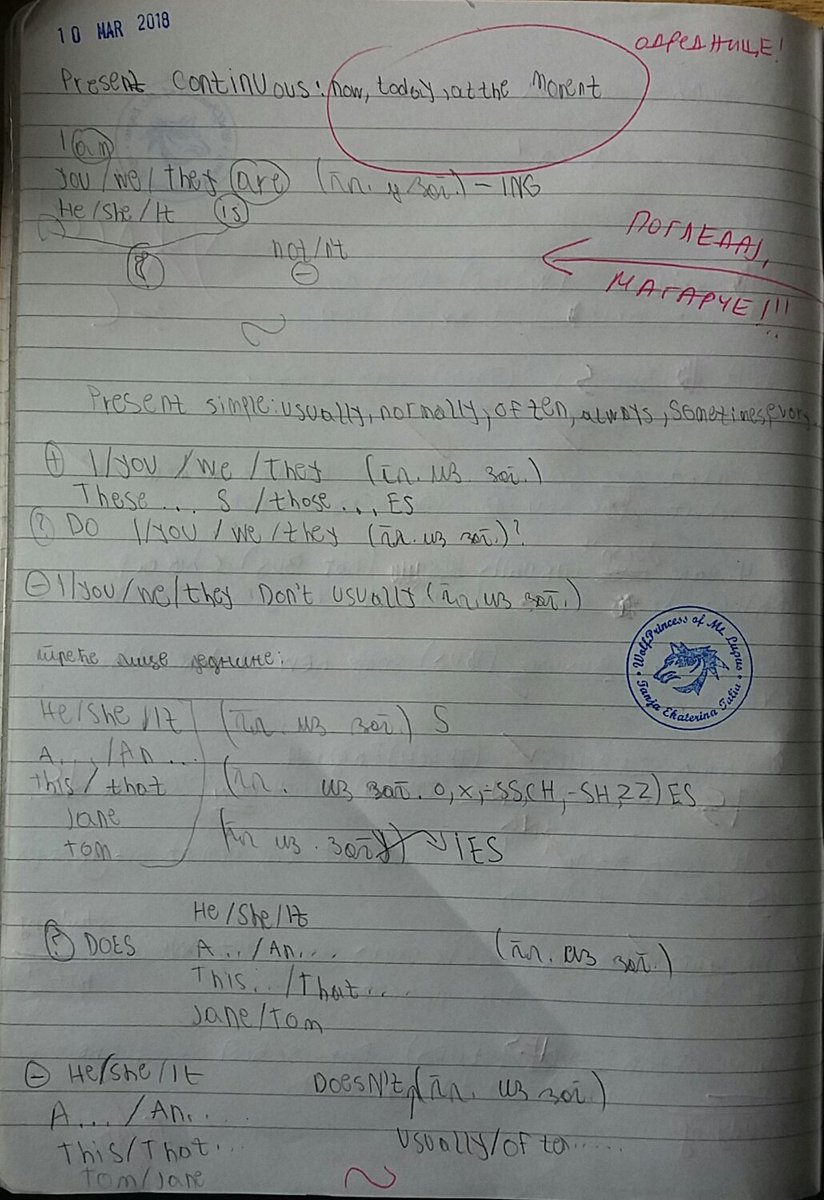 10 MAR 2018
ОДРЕДНИЦЕ!
Present Continuous: now, today, at the Moment
I am
you/we/they are (гл. у заг.) - ING
He/She/It is
ПОГЛЕДАЈ,
МАГАРЧЕ!!!
? not/nt
-
Present simple: usually, normally, often, always, sometimes, every
+ I/you/we/they (гл. из заг.)
These ... S / those ... ES
? DO I/you/we/they (гл. из заг.)?
- I/you/we/they Don't usually (гл. из заг.)
WolfPrincess of Mt. Lupus
Tanja Ekaterina Taliu
треће лице једнине:
He/She/It (гл. из заг.) S
A.../An...
This/that (гл. из заг. o, x, -SS, CH, -SH, ZZ) ES
Jane
Tom (гл из. заг y) IES
He/She/It
? DOES A.../An... (гл. из заг.)
This.../That...
Jane/Tom
- He/She/It DoesN't (гл. из заг.)
A.../An...
This/That... usually/often.....
Tom/Jane